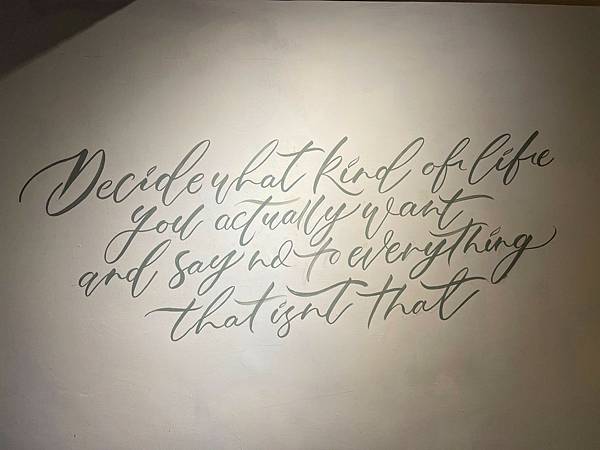 Decide what kind of life
you actually want
and say no to everything
that isnt that